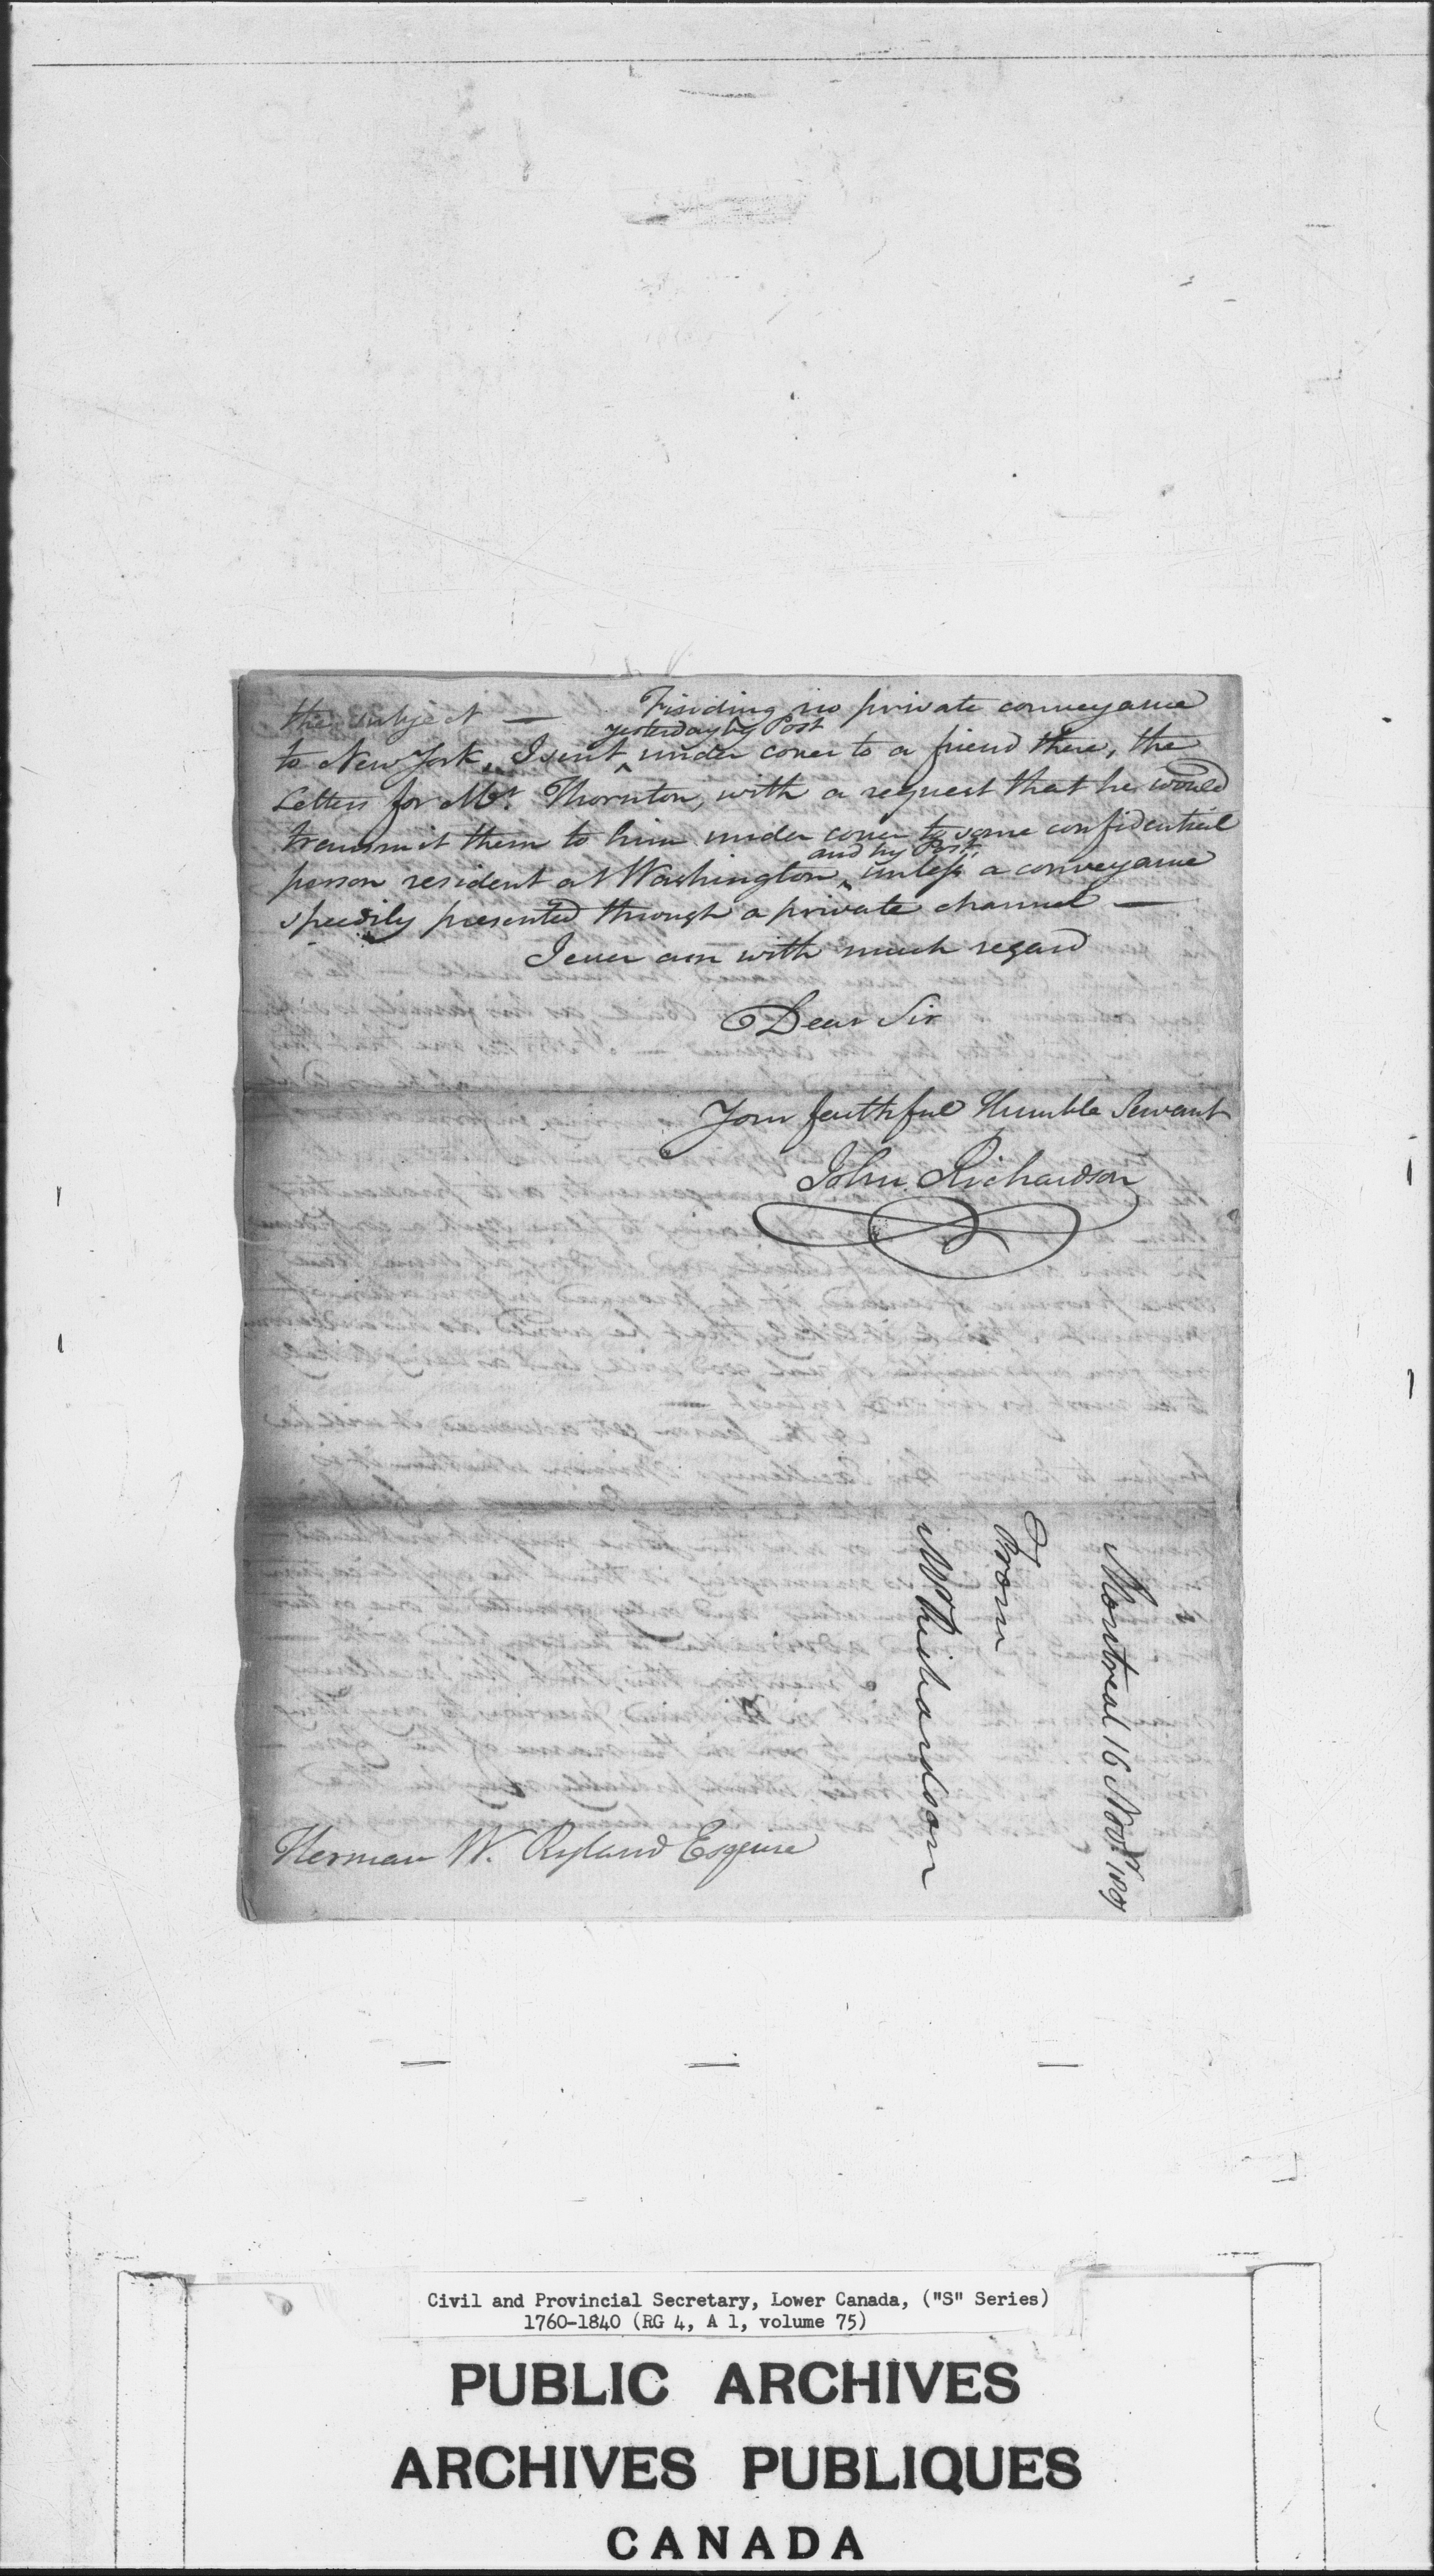 the subject — Finding no private conveyance
yesterday by Post
to New York, I sent ^ under cover to a friend there, the
Letters for Mr. Thornton, with a request that he would
transmit them to him under cover to some confidential
and by Post,
person resident at Washington ^ unless a conveyance
speedily presented through a private channel —
I ever am with much regard
Dear Sir
Your faithful Humble Servant
John Richardson
Herman W. Ryland Esquire
Montreal 16 Novr. 1801
From
Mr Richardson
Civil and Provincial Secretary, Lower Canada, ("S" Series)
1760-1840 (RG 4, A 1, volume 75)
PUBLIC ARCHIVES
ARCHIVES PUBLIQUES
CANADA